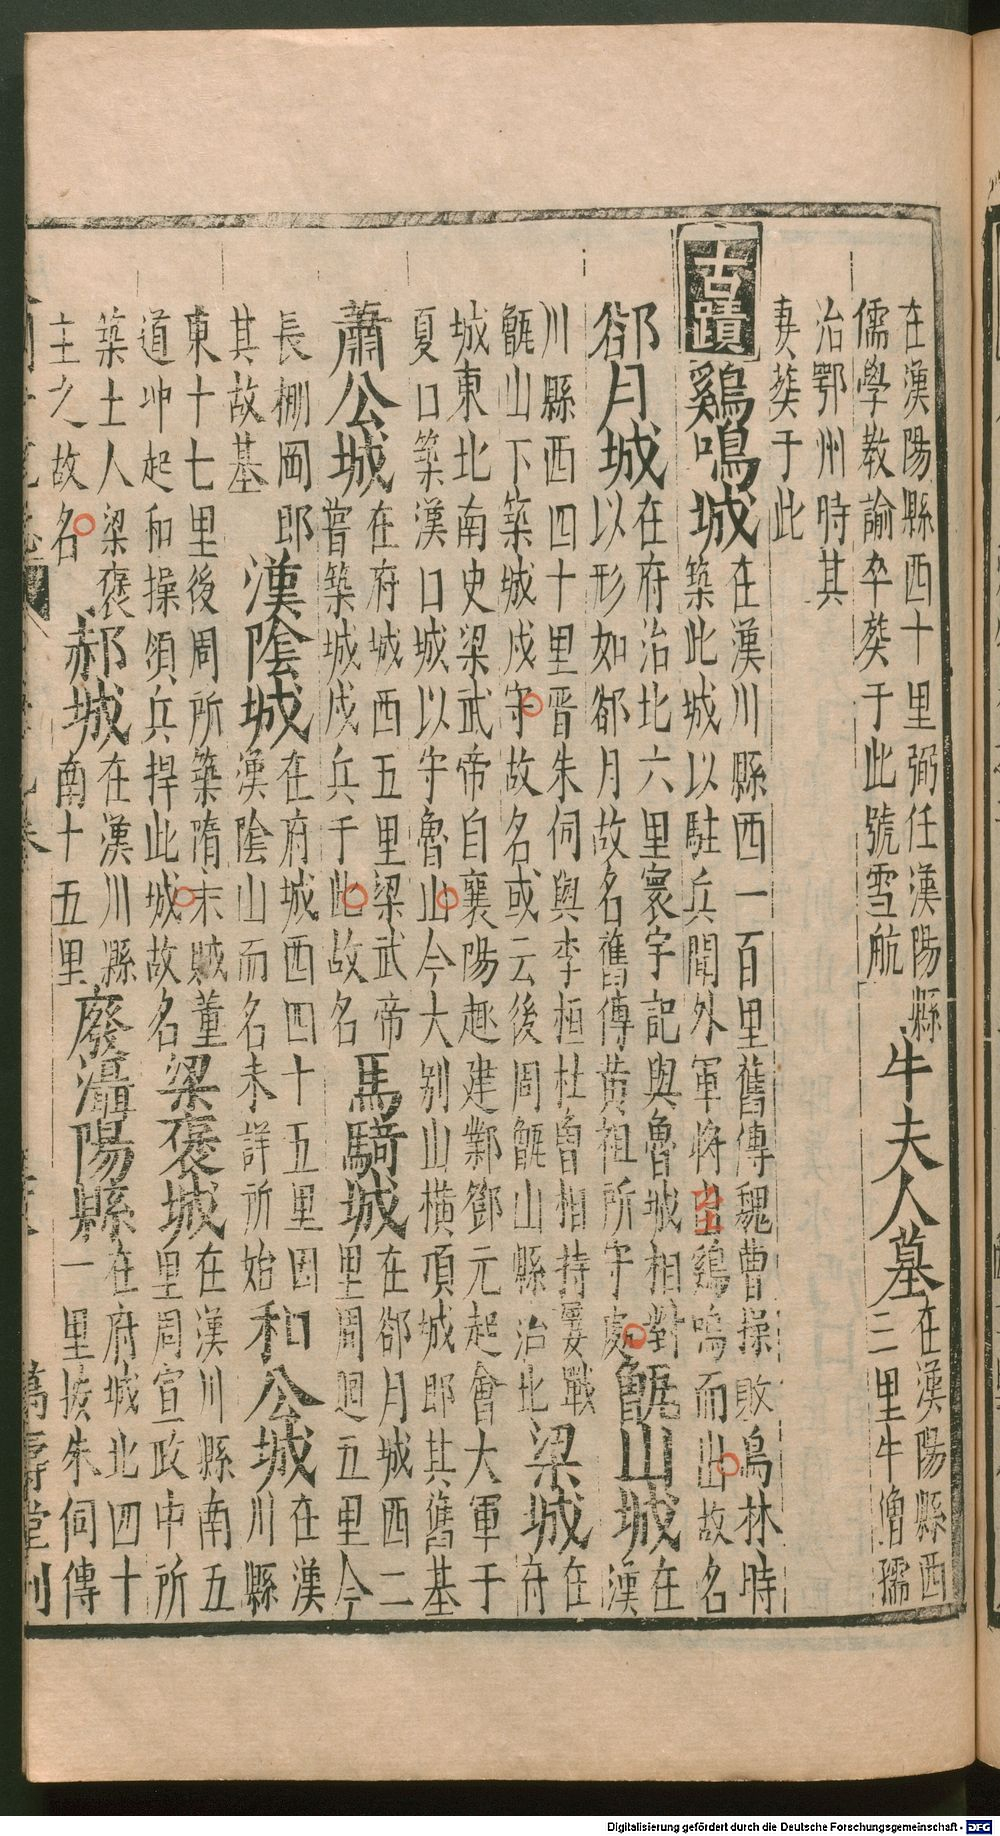 在漢陽縣西十里弼任漢陽縣
儒學教諭卒葬于此號雪航
牛夫人墓
在漢陽縣西
三里牛僧孺
治鄂州時其
妻葬于此
古蹟
鷄鳴城
在漢川縣西一百里舊傳魏曹操敗烏林時
築此城以駐兵聞外軍將至鷄鳴而出故名
郤月城
在府治北六里寰宇記與魯城相對
以形如郤月故名舊傳黄祖所守處
甑山城
在
漢
川縣西四十里晋朱伺與李桓杜曾相持屢戰
甑山下築城戍守故名或云後周甑山縣治北
梁城
在
府
城東北南史梁武帝自襄陽趣建鄴鄧元起會大軍于
夏口築漢口城以守魯山今大别山横項城即其舊基
蕭公城
在府城西五里梁武帝
嘗築城戍兵于此故名
馬騎城
在郤月城西二
里周迴五里今
長柵岡即
其故基
漢陰城
在府城西四十五里因
漢陰山而名未詳所始
和公城
在漢
川縣
東十七里後周所築隋末賊董
道冲起和操領兵捍此城故名
梁褒城
在漢川縣南五
里周宣政中所
築土人梁褒
主之故名
郝城
在漢川縣
南十五里
廢灄陽縣
在府城北四十
一里按朱伺傳
萬壽堂刊
Digitalisierung gefördert durch die Deutsche Forschungsgemeinschaft - DFG